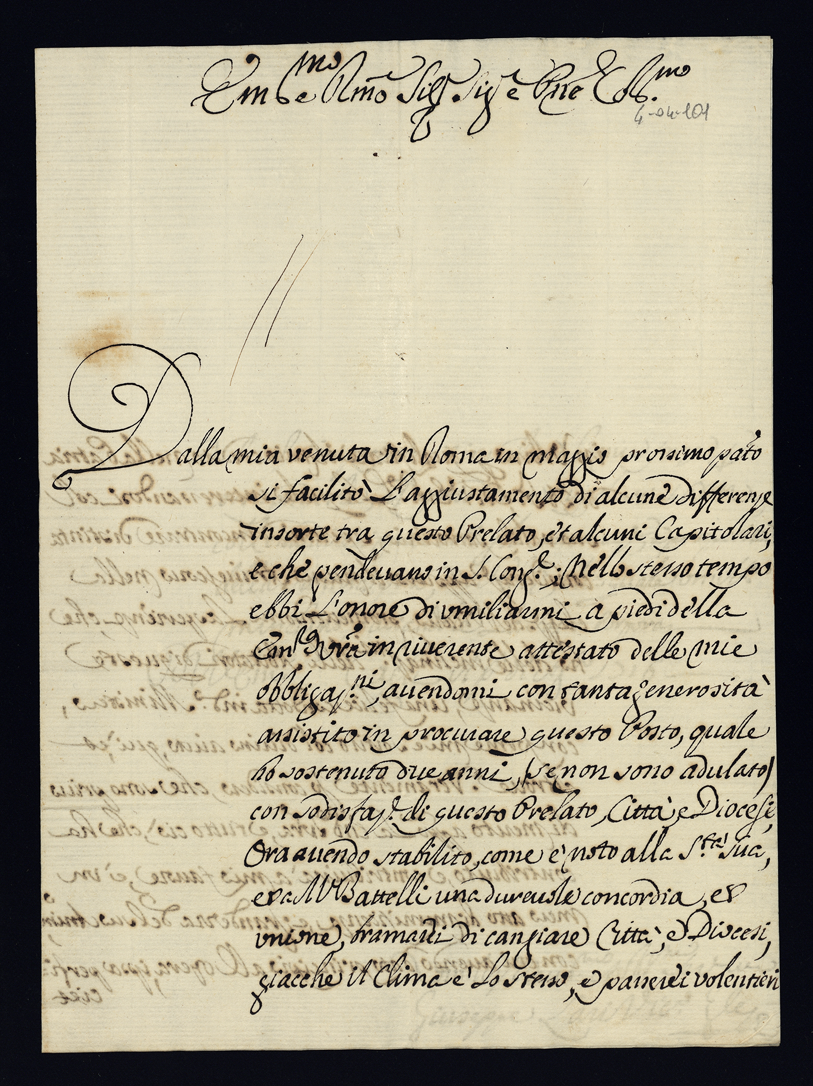 Em.mo e Rmo Sig.r Sig.r e Pne Col.mo
4-04-101
Dalla mia venuta in Roma in maggio prossimo pato
si facilitò l'aggiustamento di alcune differenze
insorte tra questo Prelato, et alcuni Capitolari,
e che pendevano in S. Cong.e; Nello stesso tempo
ebbi l'onore di umiliarmi a piedi della
Em.za Vra in riverente attestato delle mie
obbligaz.ni, avendomi con tanta generosità
assistito in procurare questo Posto, quale
hò sostenuto due anni, (se non sono adulato)
con sodisfaz.e di questo Prelato, Città, e Diocese,
Ora avendo stabilito, come è noto alla S.tà sua,
e da M.r Battelli una durevole concordia, ed
unione, bramarei di cangiare Città, e Diocesi,
giacche il Clima è lo stesso, e passerei volentieri